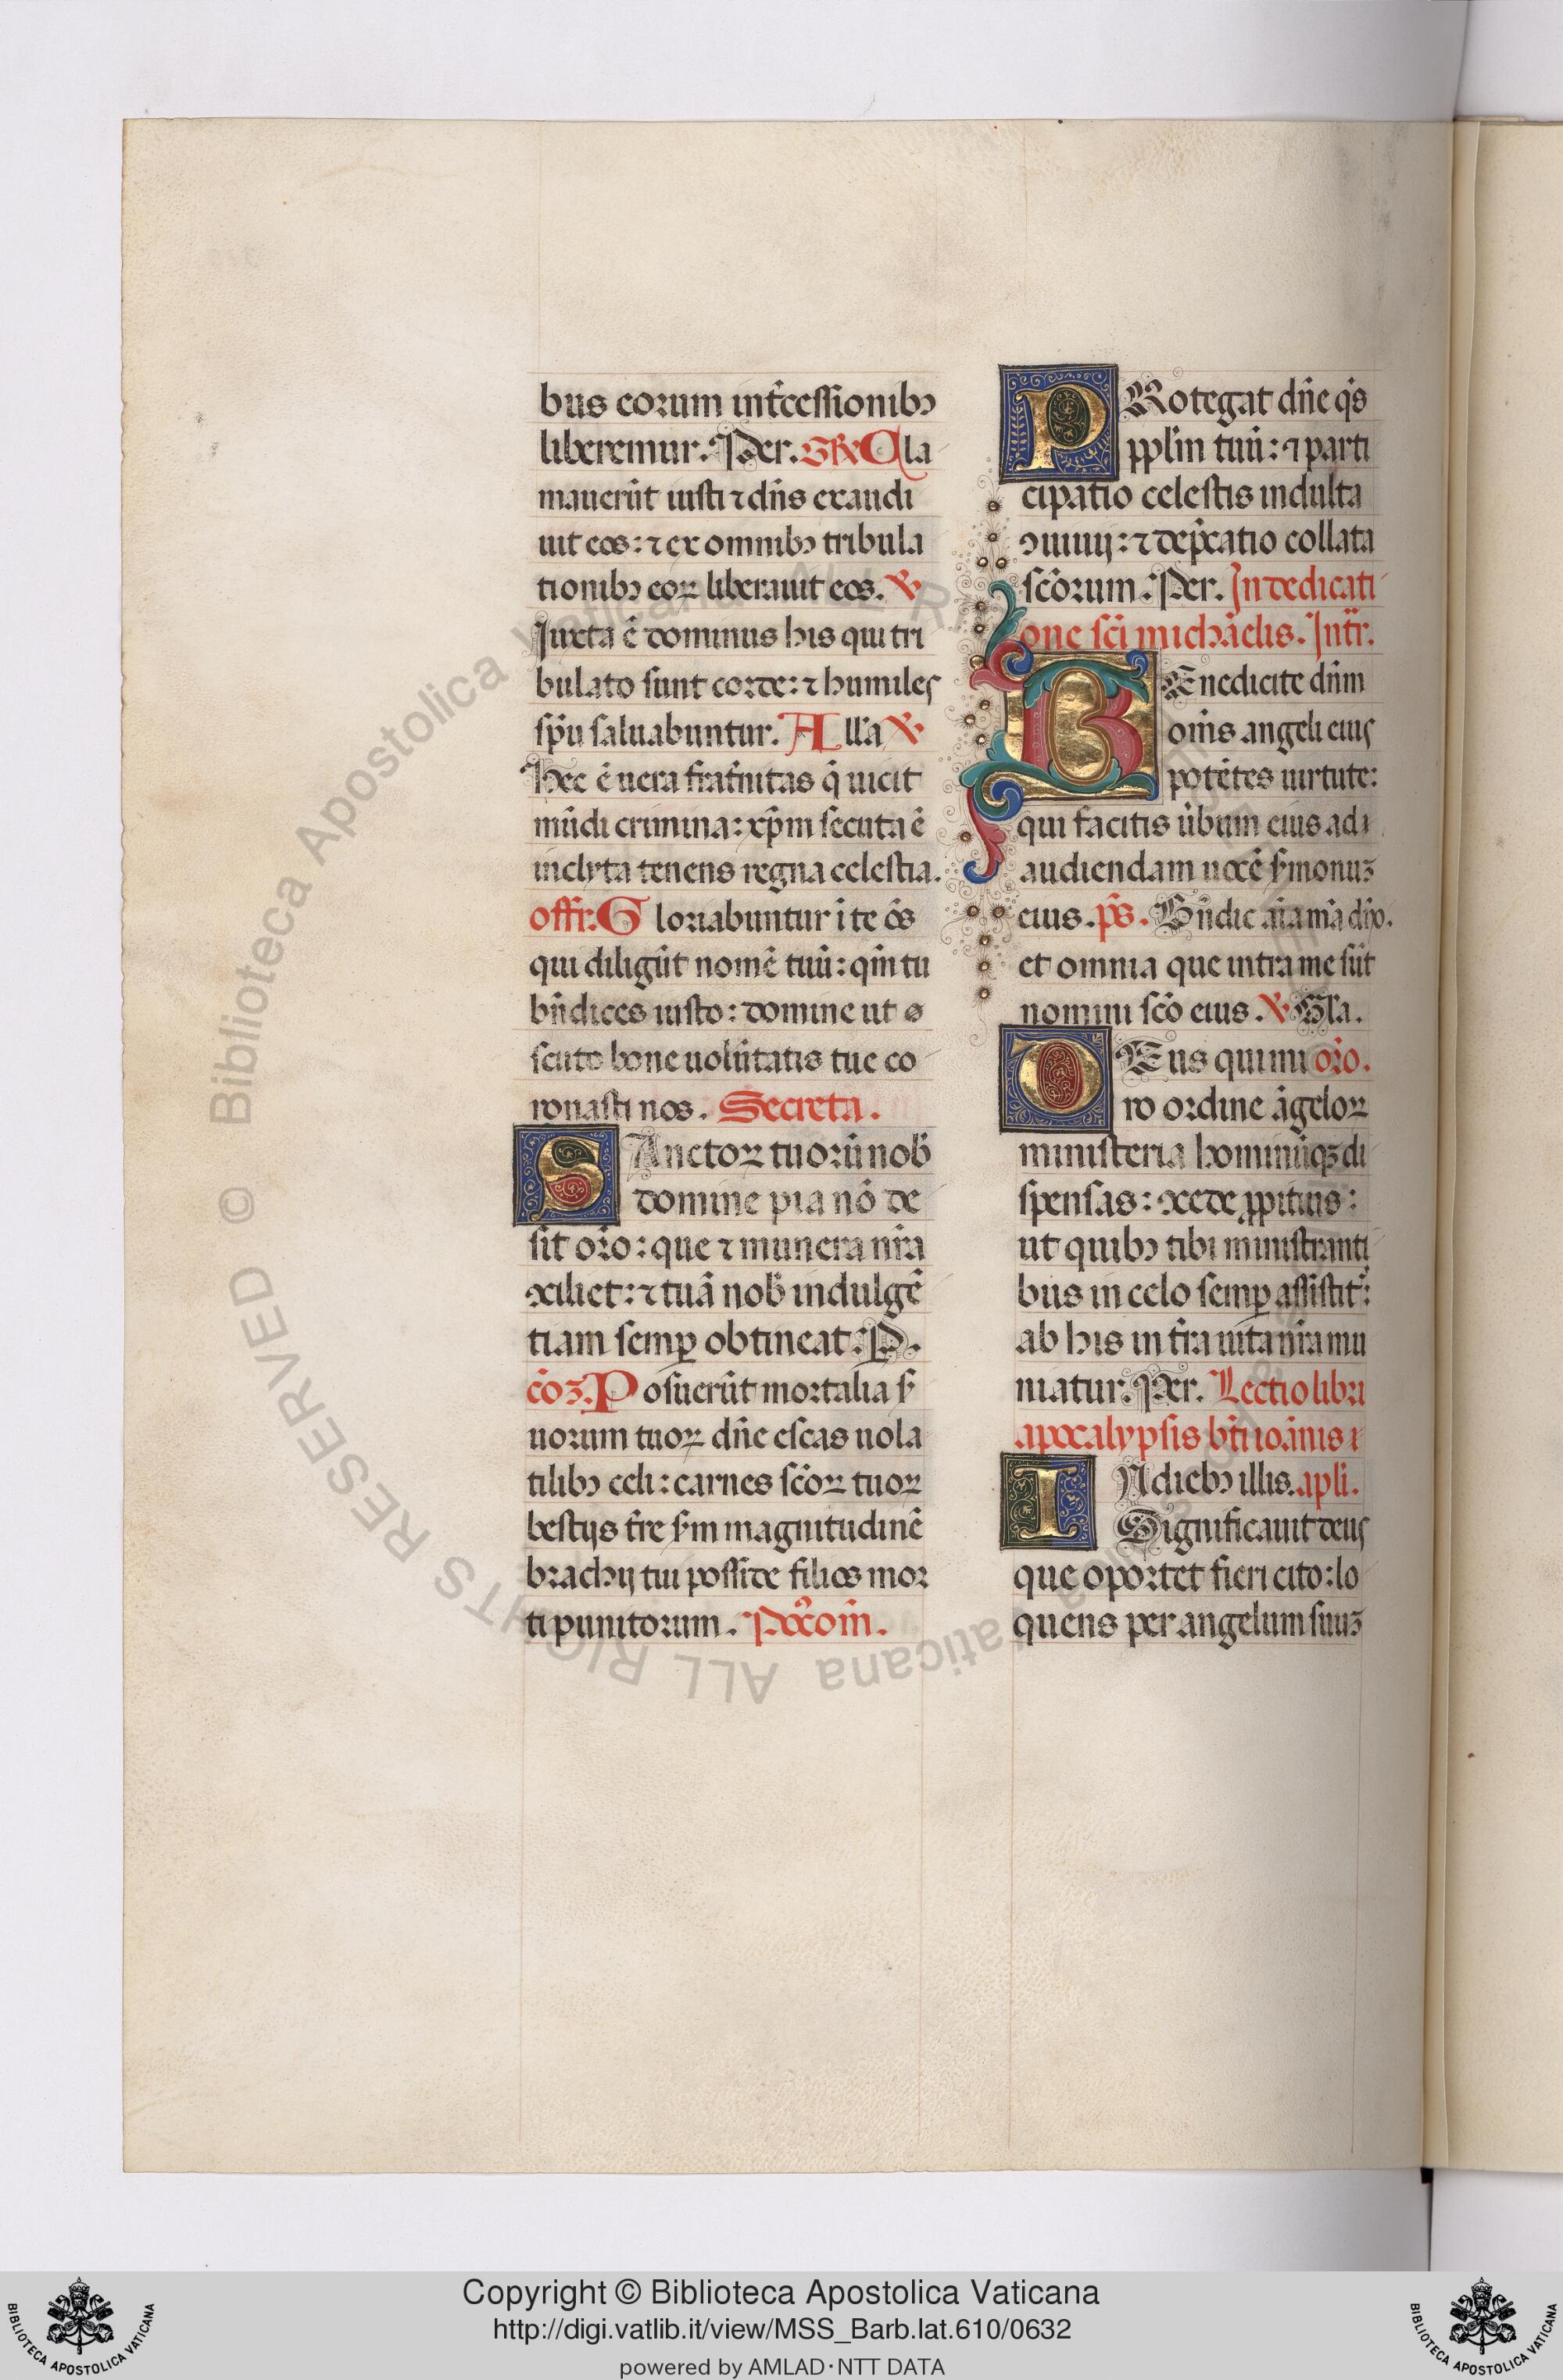 bus eorum int̃cessionibꝫ
liberemur. Per. GR̃ Cla
mauerũt iusti ⁊ dñs exaudi
uit eos: ⁊ ex omnibꝫ tribula
tionibꝫ eoꝝ liberauit eos. ℣
Iuxta ẽ dominus his qui tri
bulato sunt corde: ⁊ humiles
spũ saluabuntur. All̃a ℣
Hec ẽ uera frat̃nitas q̃ uicit
mũdi crimina: xp̃m secuta ẽ
inclyta tenens regna celestia.
offr̃. Gloriabuntur ĩ te õs
qui diligũt nomẽ tuũ: qm̃ tu
bñdices iusto: domine ut o
scuto bone uolũtatis tue co
ronasti nos. Secreta.
SAnctoꝝ tuorũ nob̃
domine pia nõ de
sit or̃o: que ⁊ munera nr̃a
ꝯciliet: ⁊ tuã nob̃ indulgẽ
tiam semꝑ obtineat. P.
cõꝫ. Posuerũt mortalia s̃
uorum tuoꝝ dñe escas uola
tilibꝫ celi: carnes sc̃oꝝ tuoꝝ
bestijs t̃re s̃m magnitudinẽ
brachij tui posside filios mor
ti punitorum. Poꝰcom̃.
PRotegat dñe q̃s
ppl̃m tuũ: ⁊ parti
cipatio celestis indulta
ꝯuiuij: ⁊ dep̃catio collata
sc̃orum. Per. In dedicati
one sc̃i michãelis. Intr̃.
BEnedicite dñm
om̃s angeli eius
potẽtes uirtute:
qui facitis ũbum eius ad
audiendam uocẽ s̃monuꝫ
eius. p̃s. Bñdic aĩa mã dño.
et omnia que intra me sũt
nomini sc̃o eius. ℣ Gl̃a.
DEus qui mi or̃o.
ro ordine ãgeloꝝ
ministeria hominũqꝫ di
spensas: ꝯcede ꝓpitius:
ut quibꝫ tibi ministranti
bus in celo semꝑ assistit̃:
ab his in t̃ra uita nr̃a mu
niatur. Per. Lectio libri
apocalypsis bt̃i ioãnis
IN diebꝫ illis. apl̃i.
Significauit deus
que oportet fieri cito: lo
quens per angelum suuꝫ
© Biblioteca Apostolica Vaticana ALL RIGHTS RESERVED
Copyright © Biblioteca Apostolica Vaticana
http://digi.vatlib.it/view/MSS_Barb.lat.610/0632
powered by AMLAD·NTT DATA
BIBLIOTECA APOSTOLICA VATICANA
BIBLIOTECA APOSTOLICA VATICANA